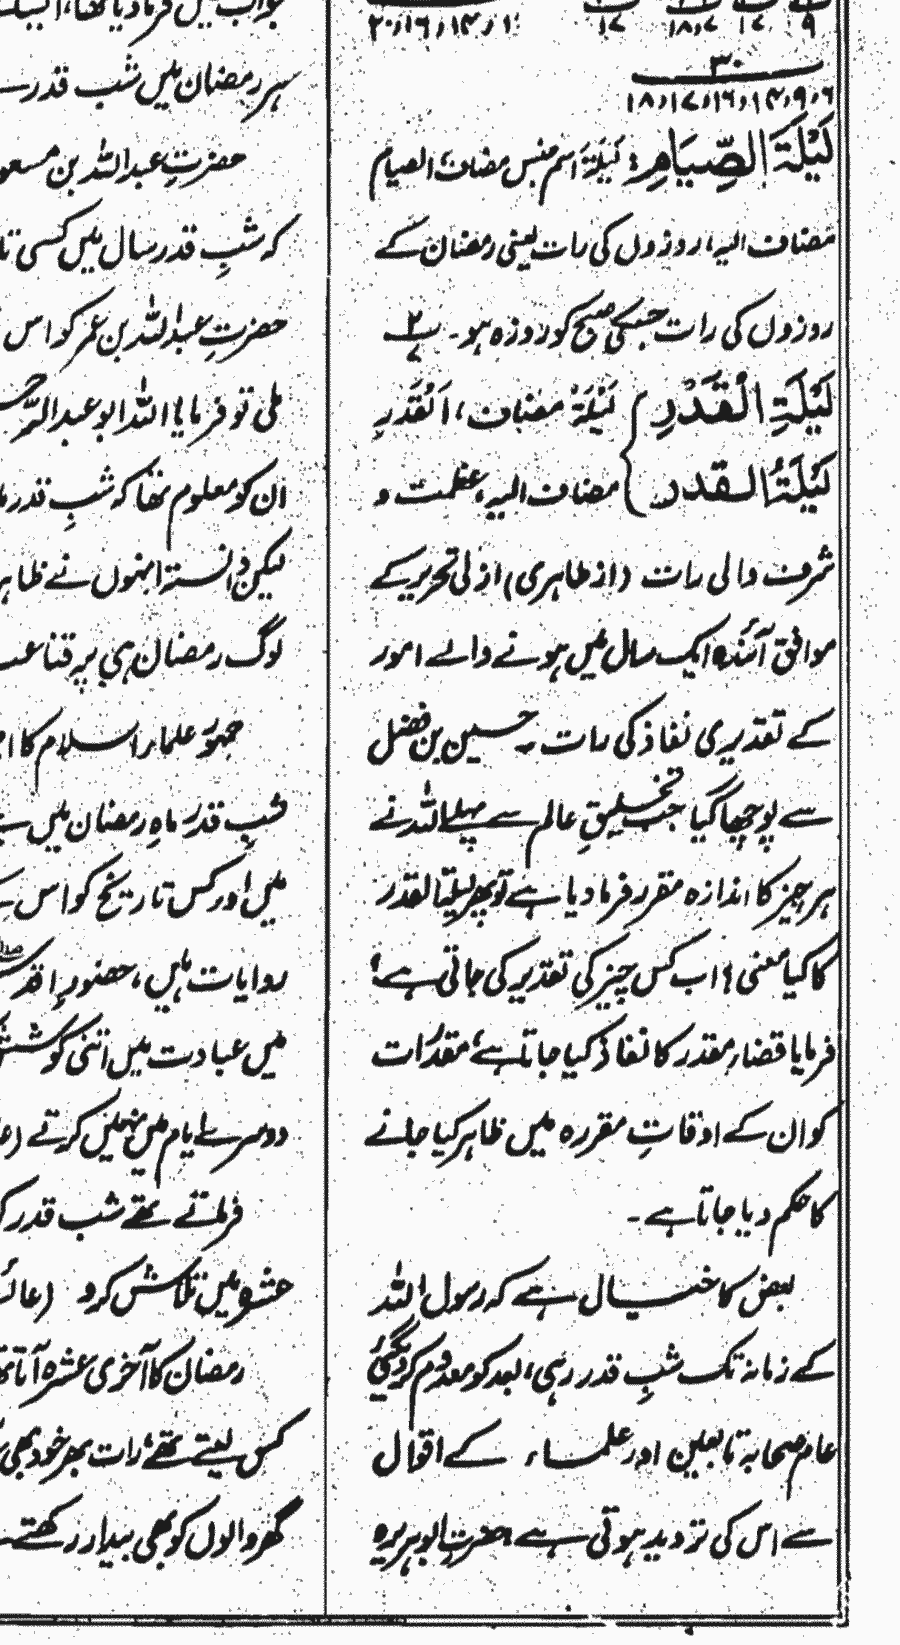 ۹ ۱۷ ۱۸،۷ ۱۷ ۱، ۱۴، ۱۶، ۲۰
۳۰
۶، ۹، ۱۴، ۱۶، ۱۷، ۱۸
لَیْلَۃَ الصِّیَامِ: لَیْلَۃَ اسم جنس مضاف، الصیام
مضاف الیہ، روزوں کی رات یعنی رمضان کے
روزوں کی رات جسکی صبح کو روزہ ہو۔ ۲/۷
لَیْلَۃِ الْقَدْرِ } لَیْلَۃِ مضاف، اَلْقَدْرِ
لَیْلَۃُ القدر } مضاف الیہ، عظمت و
شرف والی رات (از ظاہری) ازلی تحریر کے
موافق آئندہ ایک سال میں ہونے والے امور
کے تقدیری نفاذ کی رات۔ حسین بن فضل
سے پوچھا گیا جب تخلیقِ عالم سے پہلے اللہ نے
ہر چیز کا اندازہ مقرر فرما دیا ہے تو پھر لیلۃ القدر
کا کیا معنی؟ اب کس چیز کی تقدیر کی جاتی ہے؟
فرمایا قضاء مقدر کا نفاذ کیا جاتا ہے، مقدرات
کو ان کے اوقاتِ مقررہ میں ظاہر کیا جانے
کا حکم دیا جاتا ہے۔
بعض کا خیال ہے کہ رسول اللہ
کے زمانہ تک شبِ قدر رہی، بعد کو معدوم کر دی گئی
عام صحابہ تابعین اور علماء کے اقوال
سے اس کی تردید ہوتی ہے حضرت ابو ہریرہ
جواب میں فرما دیا تھا،
سر رمضان میں شب قدر
حضرتِ عبد اللہ بن مسعود
کہ شبِ قدر سال میں کسی
حضرتِ عبد اللہ بن عمر کو اس
ملی تو فرمایا اللہ ابو عبد الر
ان کو معلوم تھا کہ شبِ قدر
لیکن دانستہ انہوں نے ظاہر
لوگ رمضان ہی پر قناعت
جمہور علماء اسلام کا
شبِ قدر ماہِ رمضان میں
میں اور کس تاریخ کو اس
روایات ہیں، حضور اقدس
میں عبادت میں اتنی کوشش
دوسرے ایام میں نہیں کرتے
فرماتے تھے شب قدر
عشرہ میں تلاش کرو (عائ
رمضان کا آخری عشرہ آتا
کس لیتے تھے، رات بھر خود بھی
گھر والوں کو بھی بیدار رکھتے